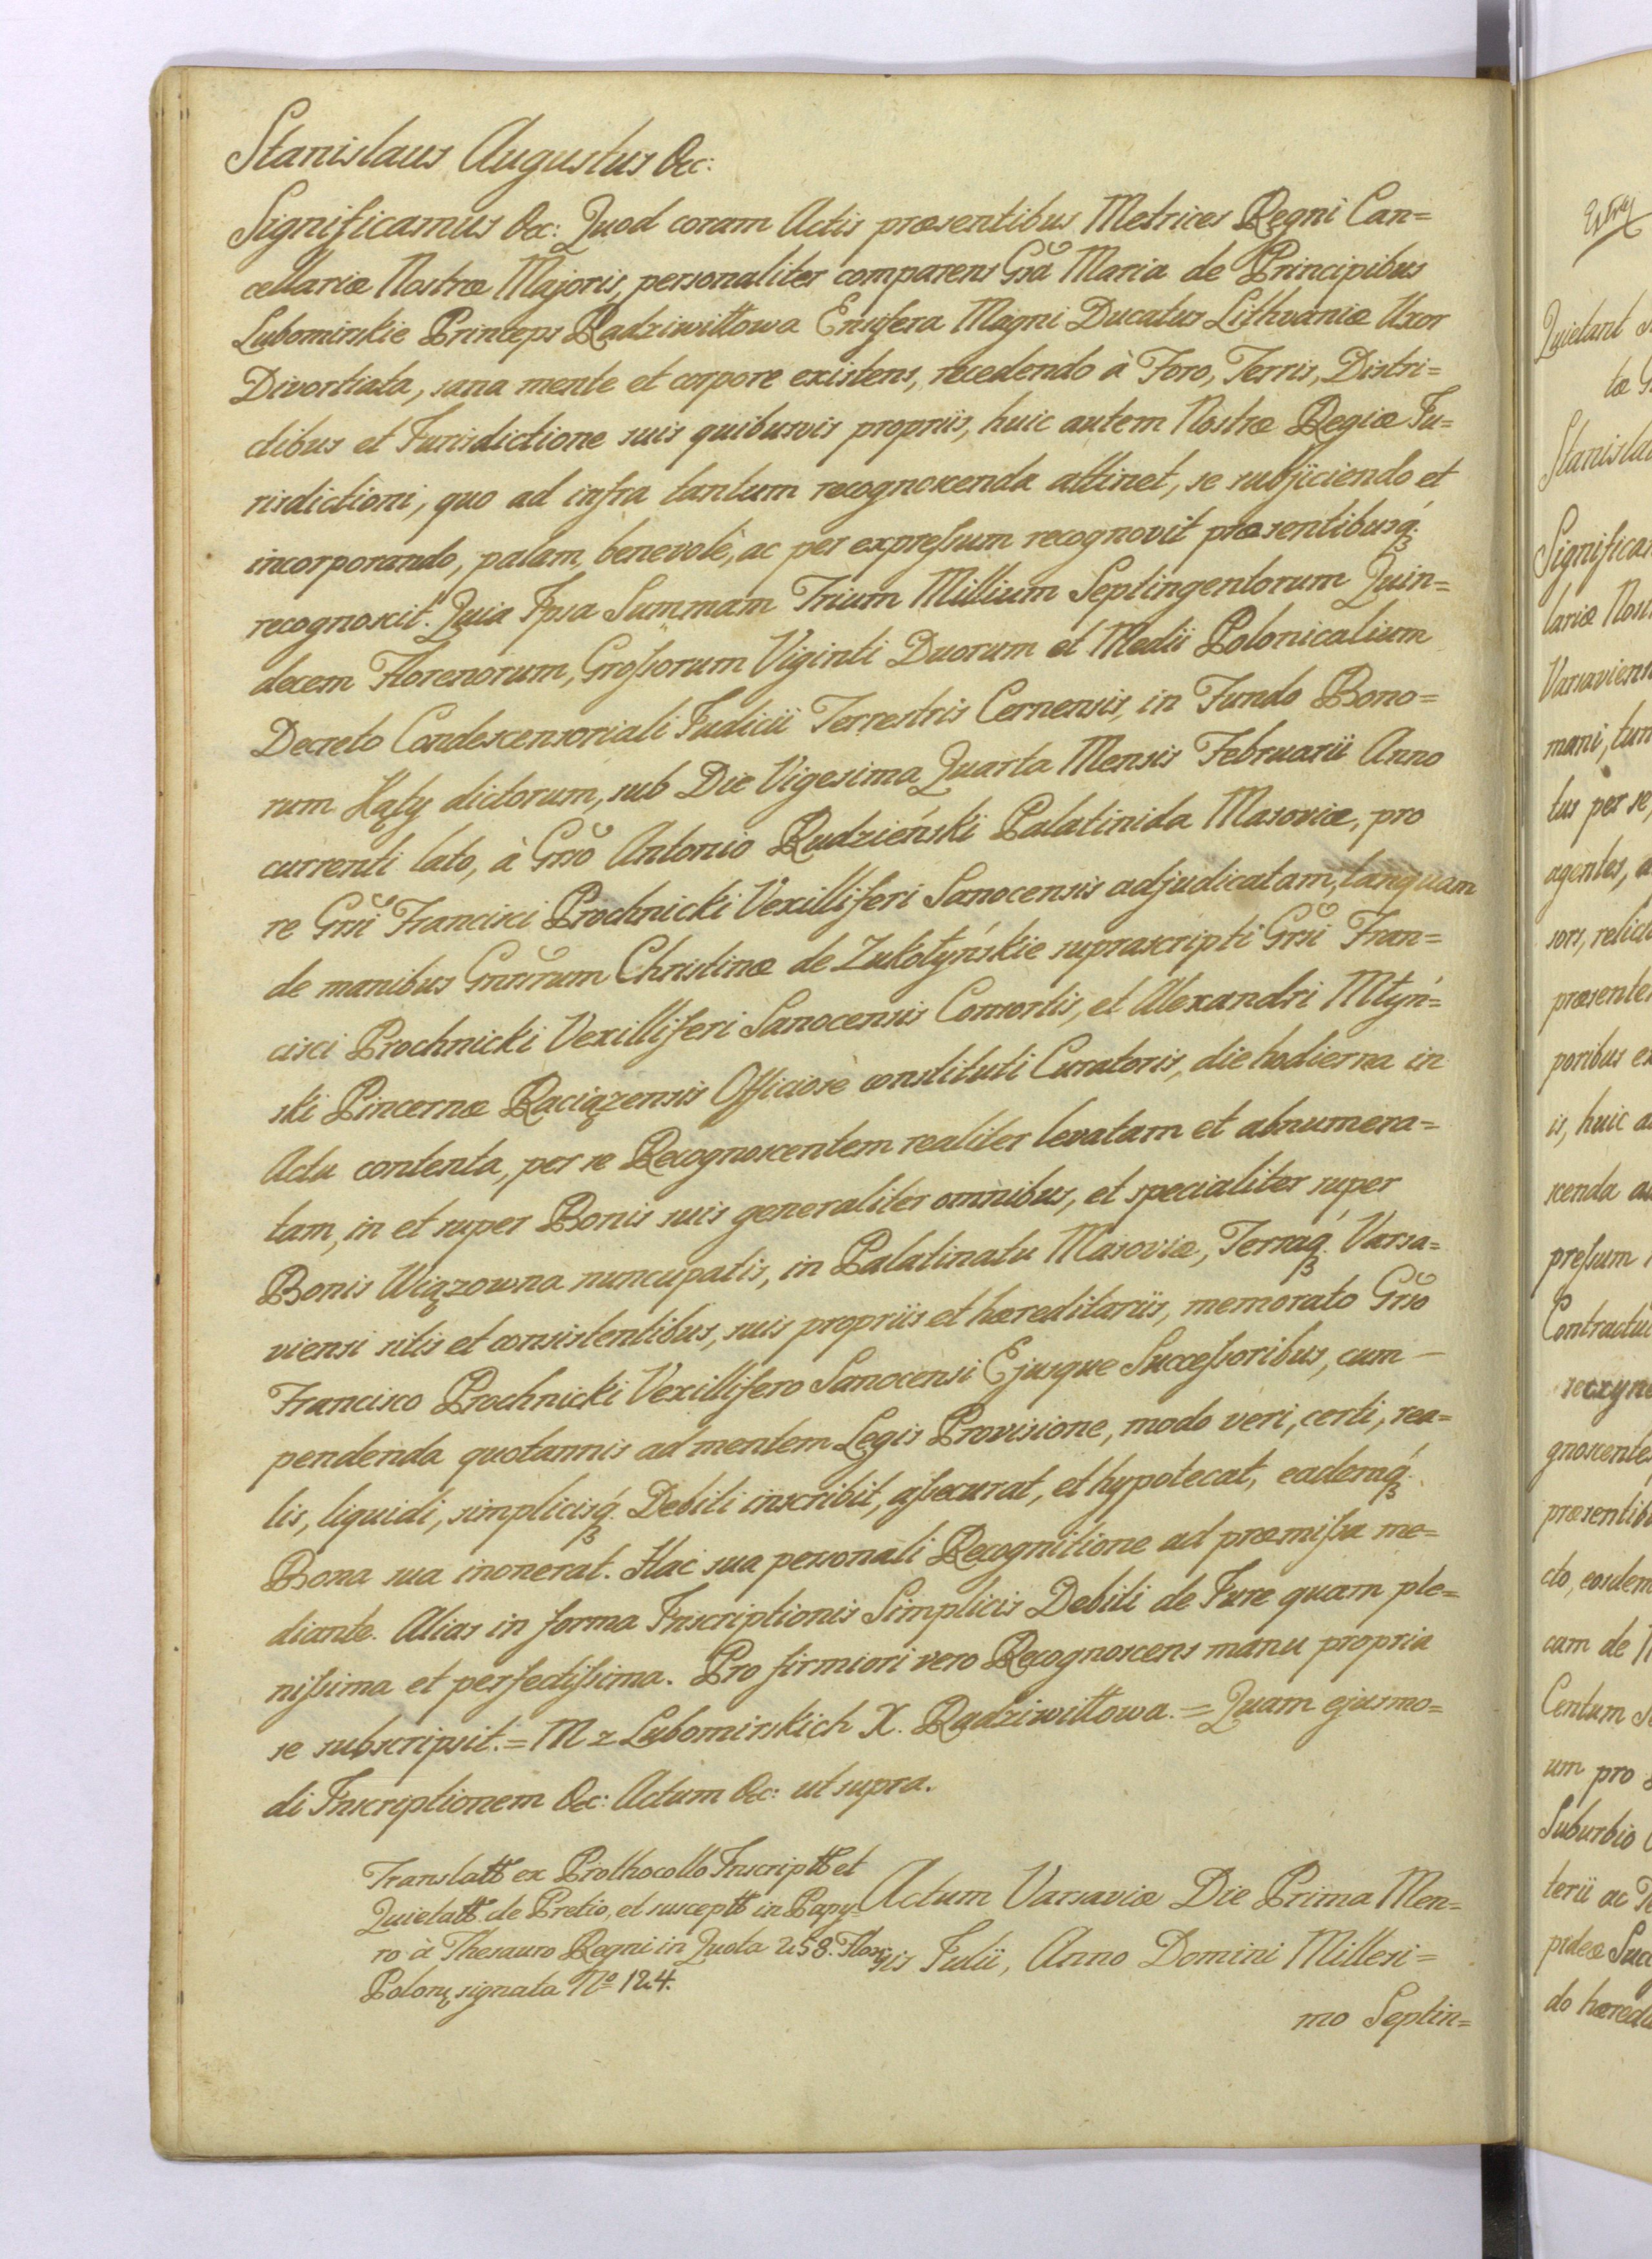 Stanislaus Augustus &c:
Significamus &c: Quod coram Actis præsentibus Metrices Regni Can=
cellariæ Nostræ Majoris, personaliter comparens Grsa Maria de Principibus
Lubomirskie Princeps Radziwiłłowa Ensifera Magni Ducatus Lithvaniæ Uxor
Divortiata, sana mente et corpore existens, recedendo à Foro, Terris, Distri=
ctibus et Jurisdictione suis quibusvis propriis, huic autem Nostræ Regiæ Ju=
risdictioni, quo ad infra tantum recognoscenda attinet, se subjiciendo et
incorporando, palam, benevolè, ac per expreſsum recognovit præsentibusq́;
recognoscit. Quia Ipsa Summam Trium Millium Septingentorum Quin=
decem Florenorum, Groſsorum Viginti Duorum et Medii Polonicalium
Decreto Condescensoriali Judicii Terrestris Cernensis, in Fundo Bono=
rum Kąty dictorum, sub Die Vigesima Quarta Mensis Februarii Anno
currenti lato, à Grso Antonio Rudzieński Palatinida Masoviæ, pro
re Grsi Francisci Prochnicki Vexilliferi Sanocensis adjudicatam, tanquam
de manibus Grsrum Christinæ de Zukotyńskie suprascripti Grsi Fran=
cisci Prochnicki Vexilliferi Sanocensis Consortis, et Alexandri Młyń=
ski Pincernæ Raciązensis Officiosè constituti Curatoris, die hodierna in
Actu contenta, per se Recognoscentem realiter levatam et abnumera=
tam, in et super Bonis suis generaliter omnibus, et specialiter super
Bonis Wiązowna nuncupatis, in Palatinatu Masoviæ, Terraq́; Varsa=
viensi sitis et consistentibus, suis propriis et hæreditariis, memorato Grso
Francisco Prochnicki Vexillifero Sanocensi Ejusque Succeſsoribus, cum —
pendenda quotannis ad mentem Legis Provisione, modo veri, certi, rea=
lis, liquidi, simplicisq́; Debiti inscribit, aſsecurat, et hypotecat, eademq́;
Bona sua inonerat. Hac sua personali Recognitione ad præmiſsa me=
diante. Alias in forma Inscriptionis Simplicis Debiti de Jure quam ple=
niſsima et perfectiſsima. Pro firmiori vero Recognoscens manu propria
se subscripsit. = M z Lubomirskich X. Radziwiłłowa. = Quam ejusmo=
di Inscriptionem &c: Actum &c: ut supra.
Translatt ex Prothocollo Inscriptt et
Quietatt. de Pretio, et susceptt in Papy=
ro à Thesauro Regni in Quota 258. Flor
Polonrꝫ signata No 124.
Actum Varsaviæ Die Prima Men=
sis Julii, Anno Domini Millesi=
mo Septin=
Quietant
Stanisla
Significa
lariæ Nost
Varsaviens
mani, tum
tus per se,
agentes, a
sors, relict
præsente
poribus ex
is, huic a
scenda a
preſsum
Contractu
gnoscente
præsentib
cto, eosdem
cam de
Centum
um pro
Suburbio
terii ac
pideæ Suc
do hæred